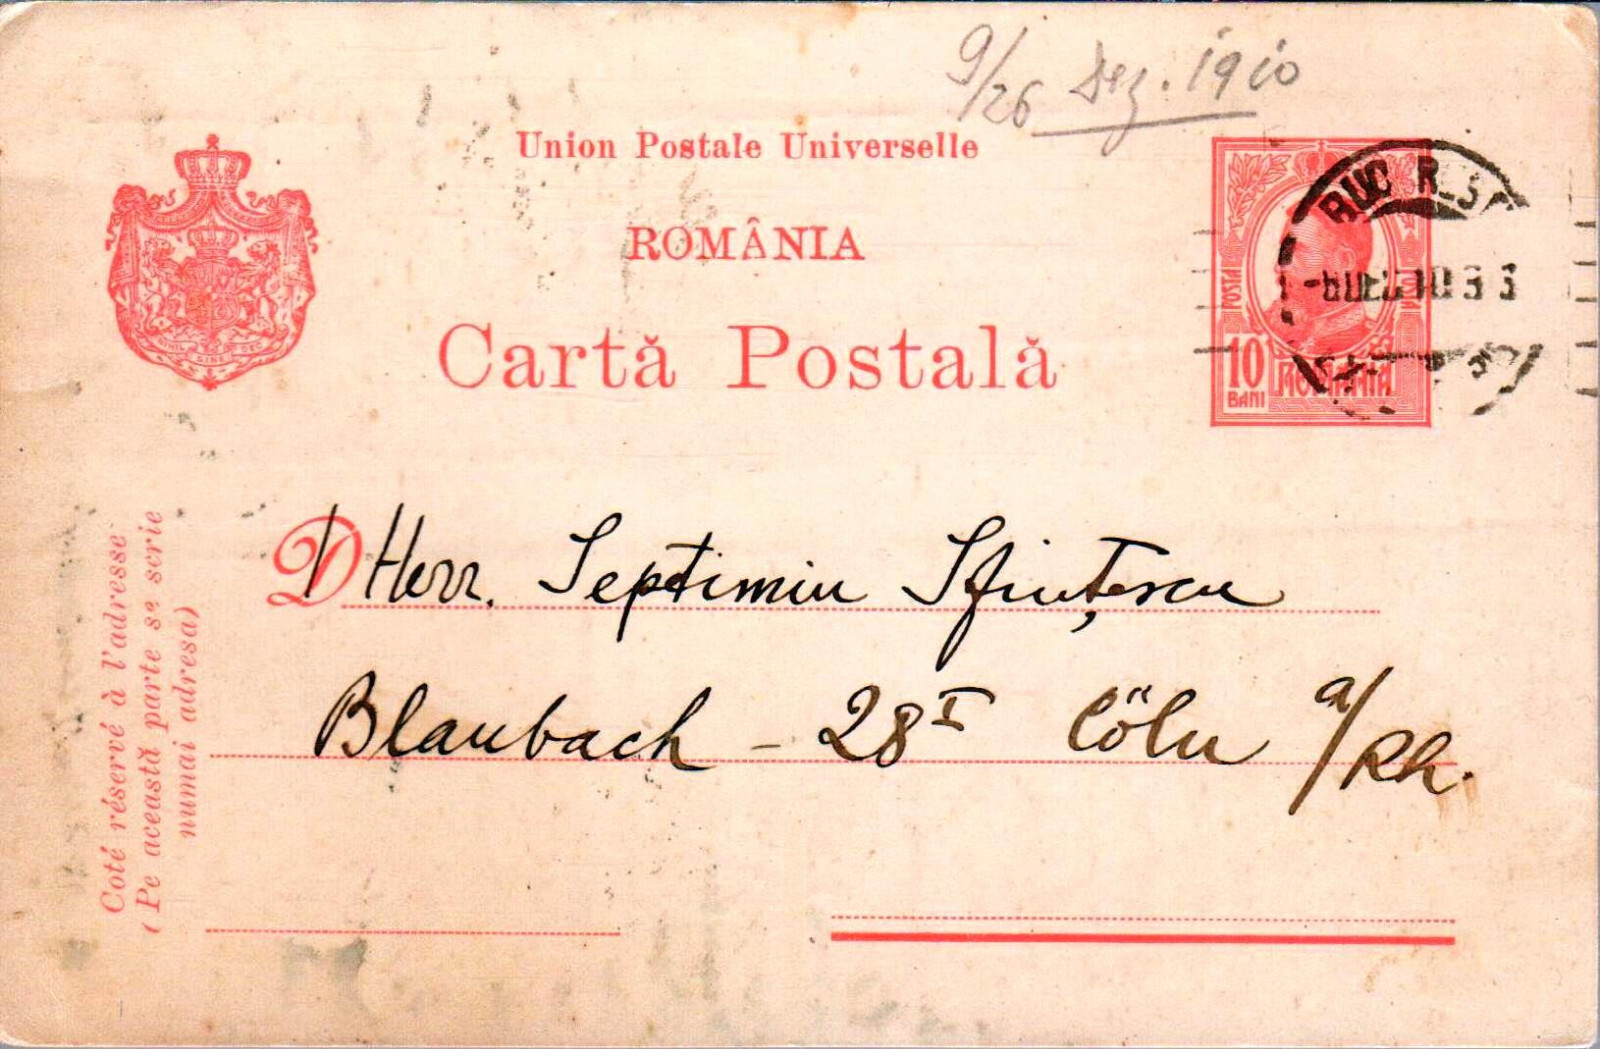 9/26 Dez. 1910
Union Postale Universelle
ROMÂNIA
Cartă Postală
NIHIL SINE DEO
POSTA
10
BANI
ROMANIA
Coté réservé à l'adresse
(Pe această parte se scrie
numai adresa)
D Herr. Septimiu Sfințescu
Blaubach - 28 I Cöln a/Rh.